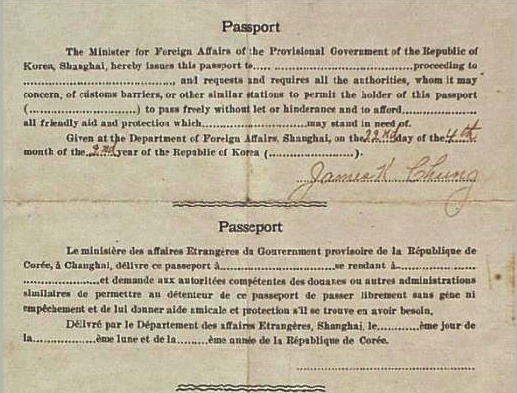 Passport
The Minister for Foreign Affairs of the Provisional Government of the Republic of
Korea, Shanghai, hereby issues this passport to.... ..............................proceeding to
......................................, and requests and requires all the authorities, whom it may
concern, of customs barriers, or other similar stations to permit the holder of this passport
(............................) to pass freely without let or hinderance and to afford....................
all friendly aid and protection which............................may stand in need of.
Given at the Department of Foreign Affairs, Shanghai, on the 22nd day of the 4th
month of the 2nd year of the Republic of Korea (......................).
James K Chung
Passeport
Le ministère des affaires Etrangères du Gouvernment provisoire de la République de
Corée, à Changhai, délivre ce passeport à..............................se rendant à....................
....................et demande aux autoritées compétentes des douanes ou autres administrations
similaires de permettre au détenteur de ce passeport de passer librement sans gène ni
empêchement et de lui donner aide amicale et protection s'il se trouve en avoir besoin.
Délivré par le Département des affaires Etrangères, Shanghai, le..........ème jour de
la..............ème lune et de la........ème année de la République de Corée.